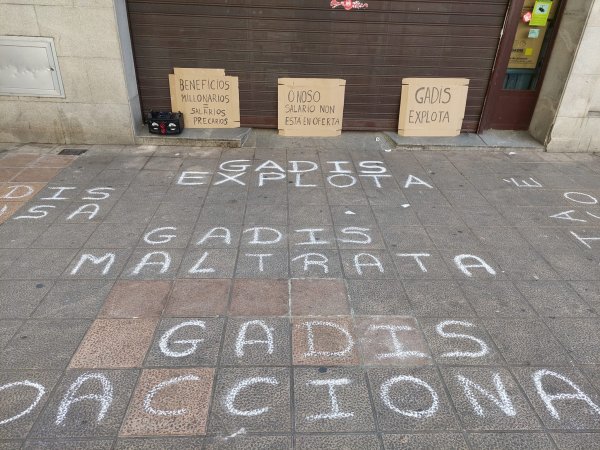 BENEFICIOS
MILLONARIOS
=
SALARIOS
PRECARIOS
O NOSO
SALARIO NON
ESTÁ EN OFERTA
GADIS
EXPLOTA
GADIS
EXPLOTA
GADIS
MALTRATA
GADIS
COACCIONA